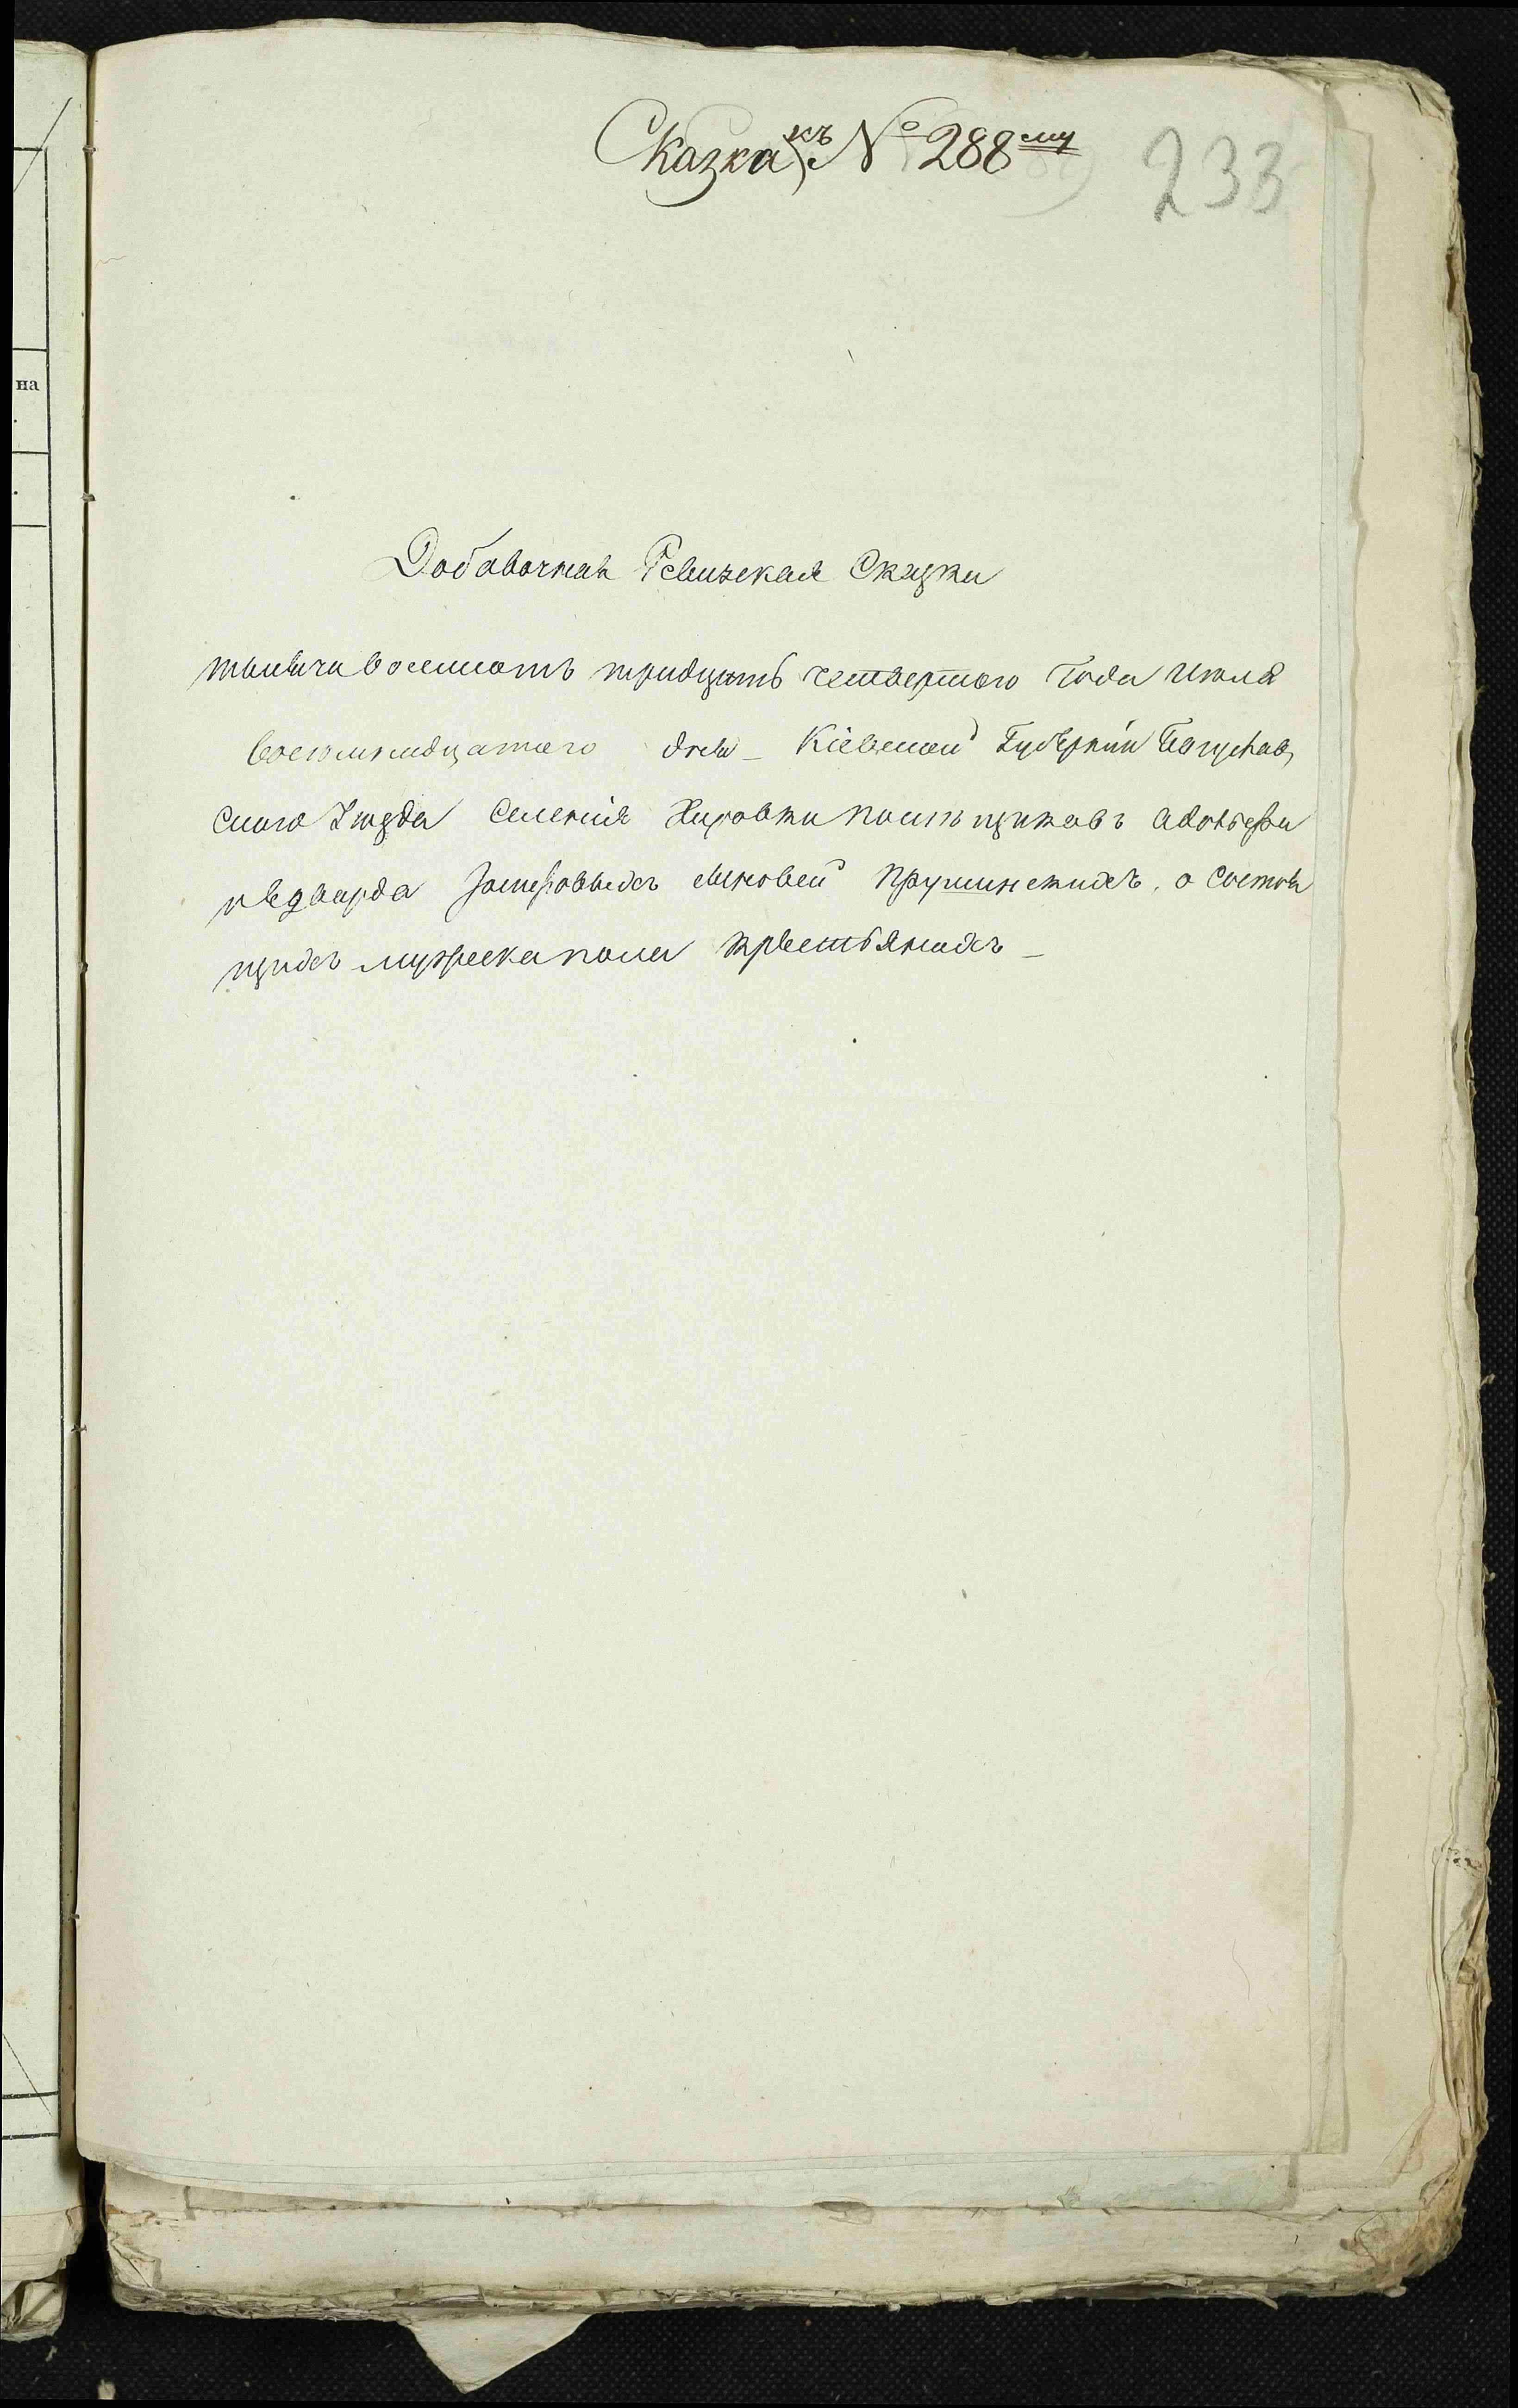 Сказка къ № 288му
233
на
Добавочная Ревизская Сказка
тысяча восемсотъ тридцать четвертого Года Июля
восемнадцатого дня Кіевской Губерніи Богуслав,
скаго Уезда Селенія Хировки помещиковъ Адольфа
и Едварда Иосифовыхъ сыновей Прушинскихъ, о состоя
щихъ мужеска пола крестьянахъ